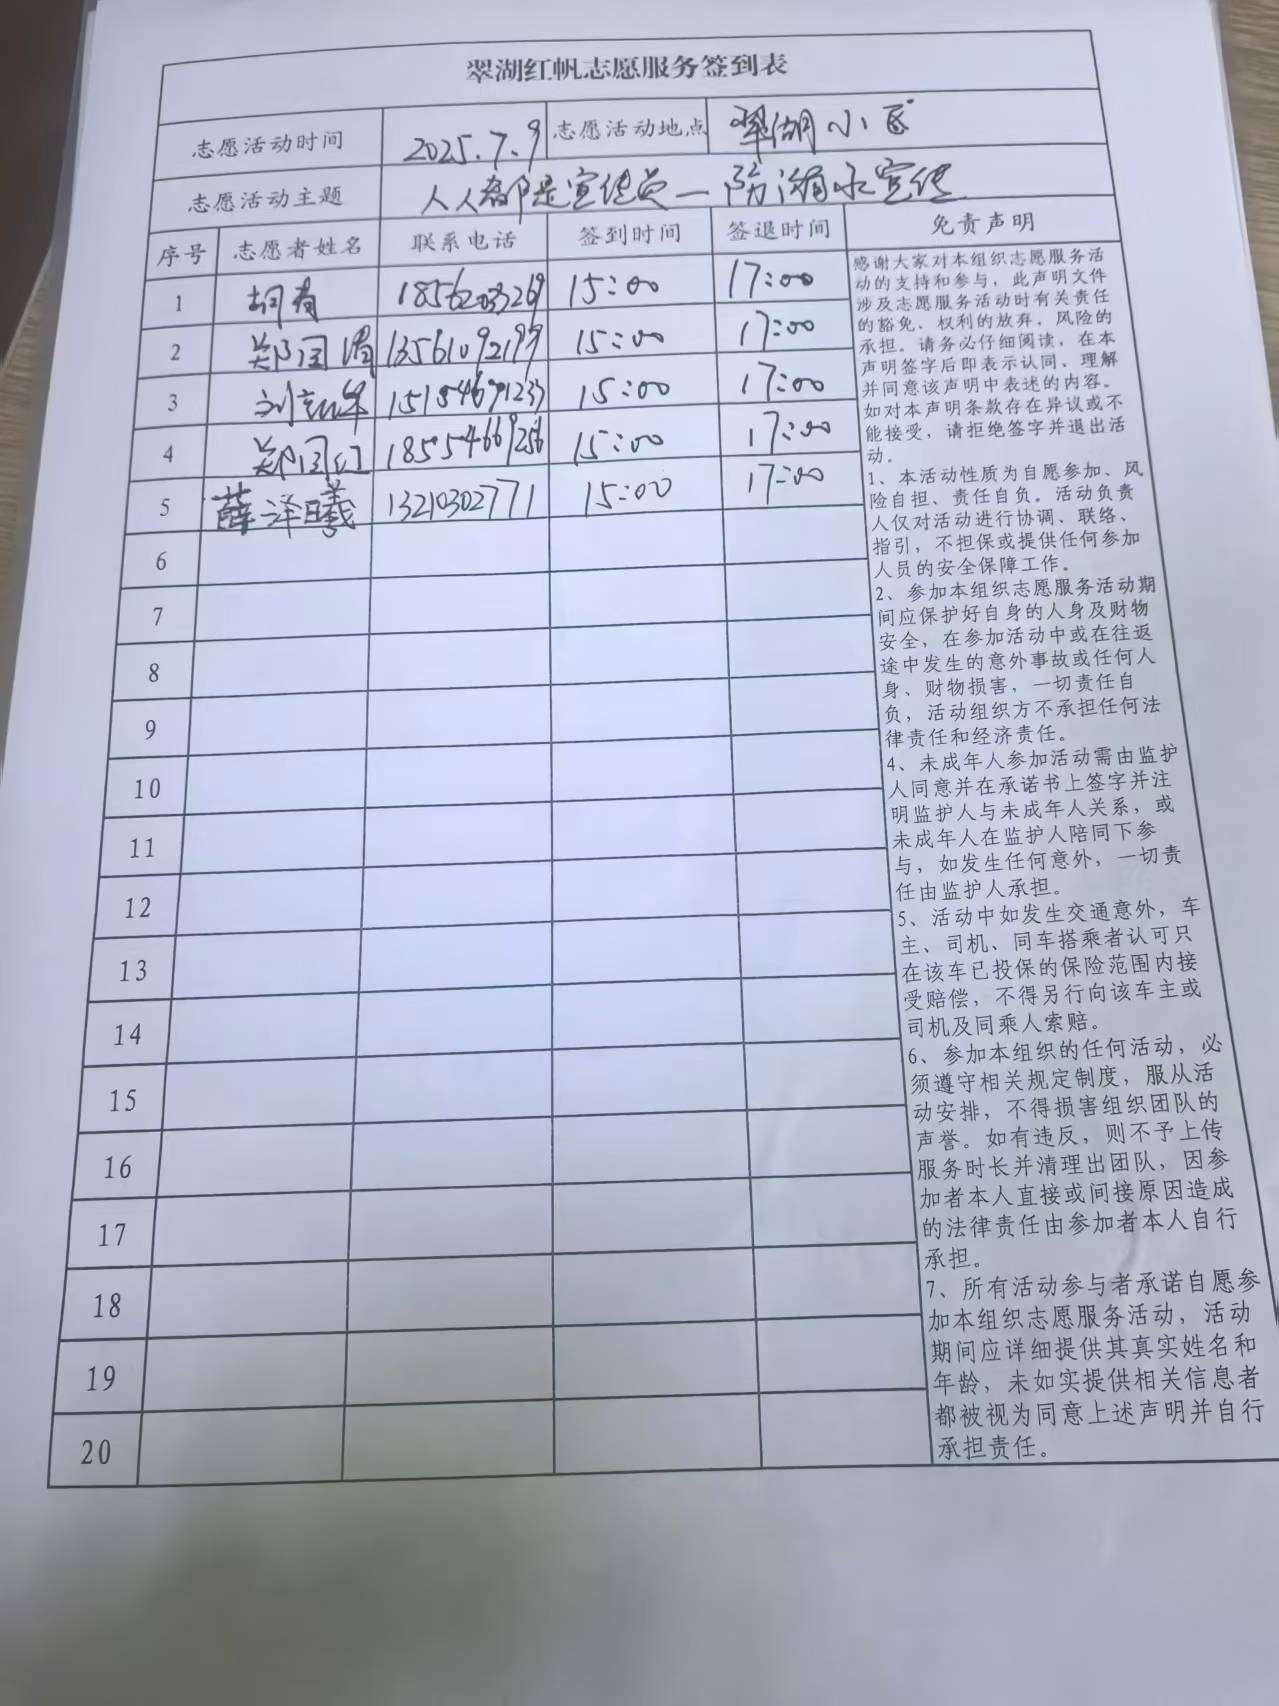 翠湖红帆志愿服务签到表
志愿活动时间 2025.7.9 志愿活动地点 翠湖小区
志愿活动主题 人人都是宣传员—防溺水宣传
序号 志愿者姓名 联系电话 签到时间 签退时间 免责声明
1 18562033269 15:00 17:00
2 郑国 13561092199 15:00 17:00
3 15154691233 15:00 17:00
4 郑国红 18554669256 15:00 17:00
5 薛泽曦 13210302771 15:00 17:00
6
7
8
9
10
11
12
13
14
15
16
17
18
19
20
感谢大家对本组织志愿服务活
动的支持和参与，此声明文件
涉及志愿服务活动时有关责任
的豁免、权利的放弃、风险的
承担。请务必仔细阅读，在本
声明签字后即表示认同、理解
并同意该声明中表述的内容。
如对本声明条款存在异议或不
能接受，请拒绝签字并退出活
动。
1、本活动性质为自愿参加、风
险自担、责任自负。活动负责
人仅对活动进行协调、联络、
指引，不担保或提供任何参加
人员的安全保障工作。
2、参加本组织志愿服务活动期
间应保护好自身的人身及财物
安全，在参加活动中或在往返
途中发生的意外事故或任何人
身、财物损害，一切责任自
负，活动组织方不承担任何法
律责任和经济责任。
4、未成年人参加活动需由监护
人同意并在承诺书上签字并注
明监护人与未成年人关系，或
未成年人在监护人陪同下参
与，如发生任何意外，一切责
任由监护人承担。
5、活动中如发生交通意外，车
主、司机、同车搭乘者认可只
在该车已投保的保险范围内接
受赔偿，不得另行向该车主或
司机及同乘人索赔。
6、参加本组织的任何活动，必
须遵守相关规定制度，服从活
动安排，不得损害组织团队的
声誉。如有违反，则不予上传
服务时长并清理出团队，因参
加者本人直接或间接原因造成
的法律责任由参加者本人自行
承担。
7、所有活动参与者承诺自愿参
加本组织志愿服务活动，活动
期间应详细提供其真实姓名和
年龄，未如实提供相关信息者
都被视为同意上述声明并自行
承担责任。